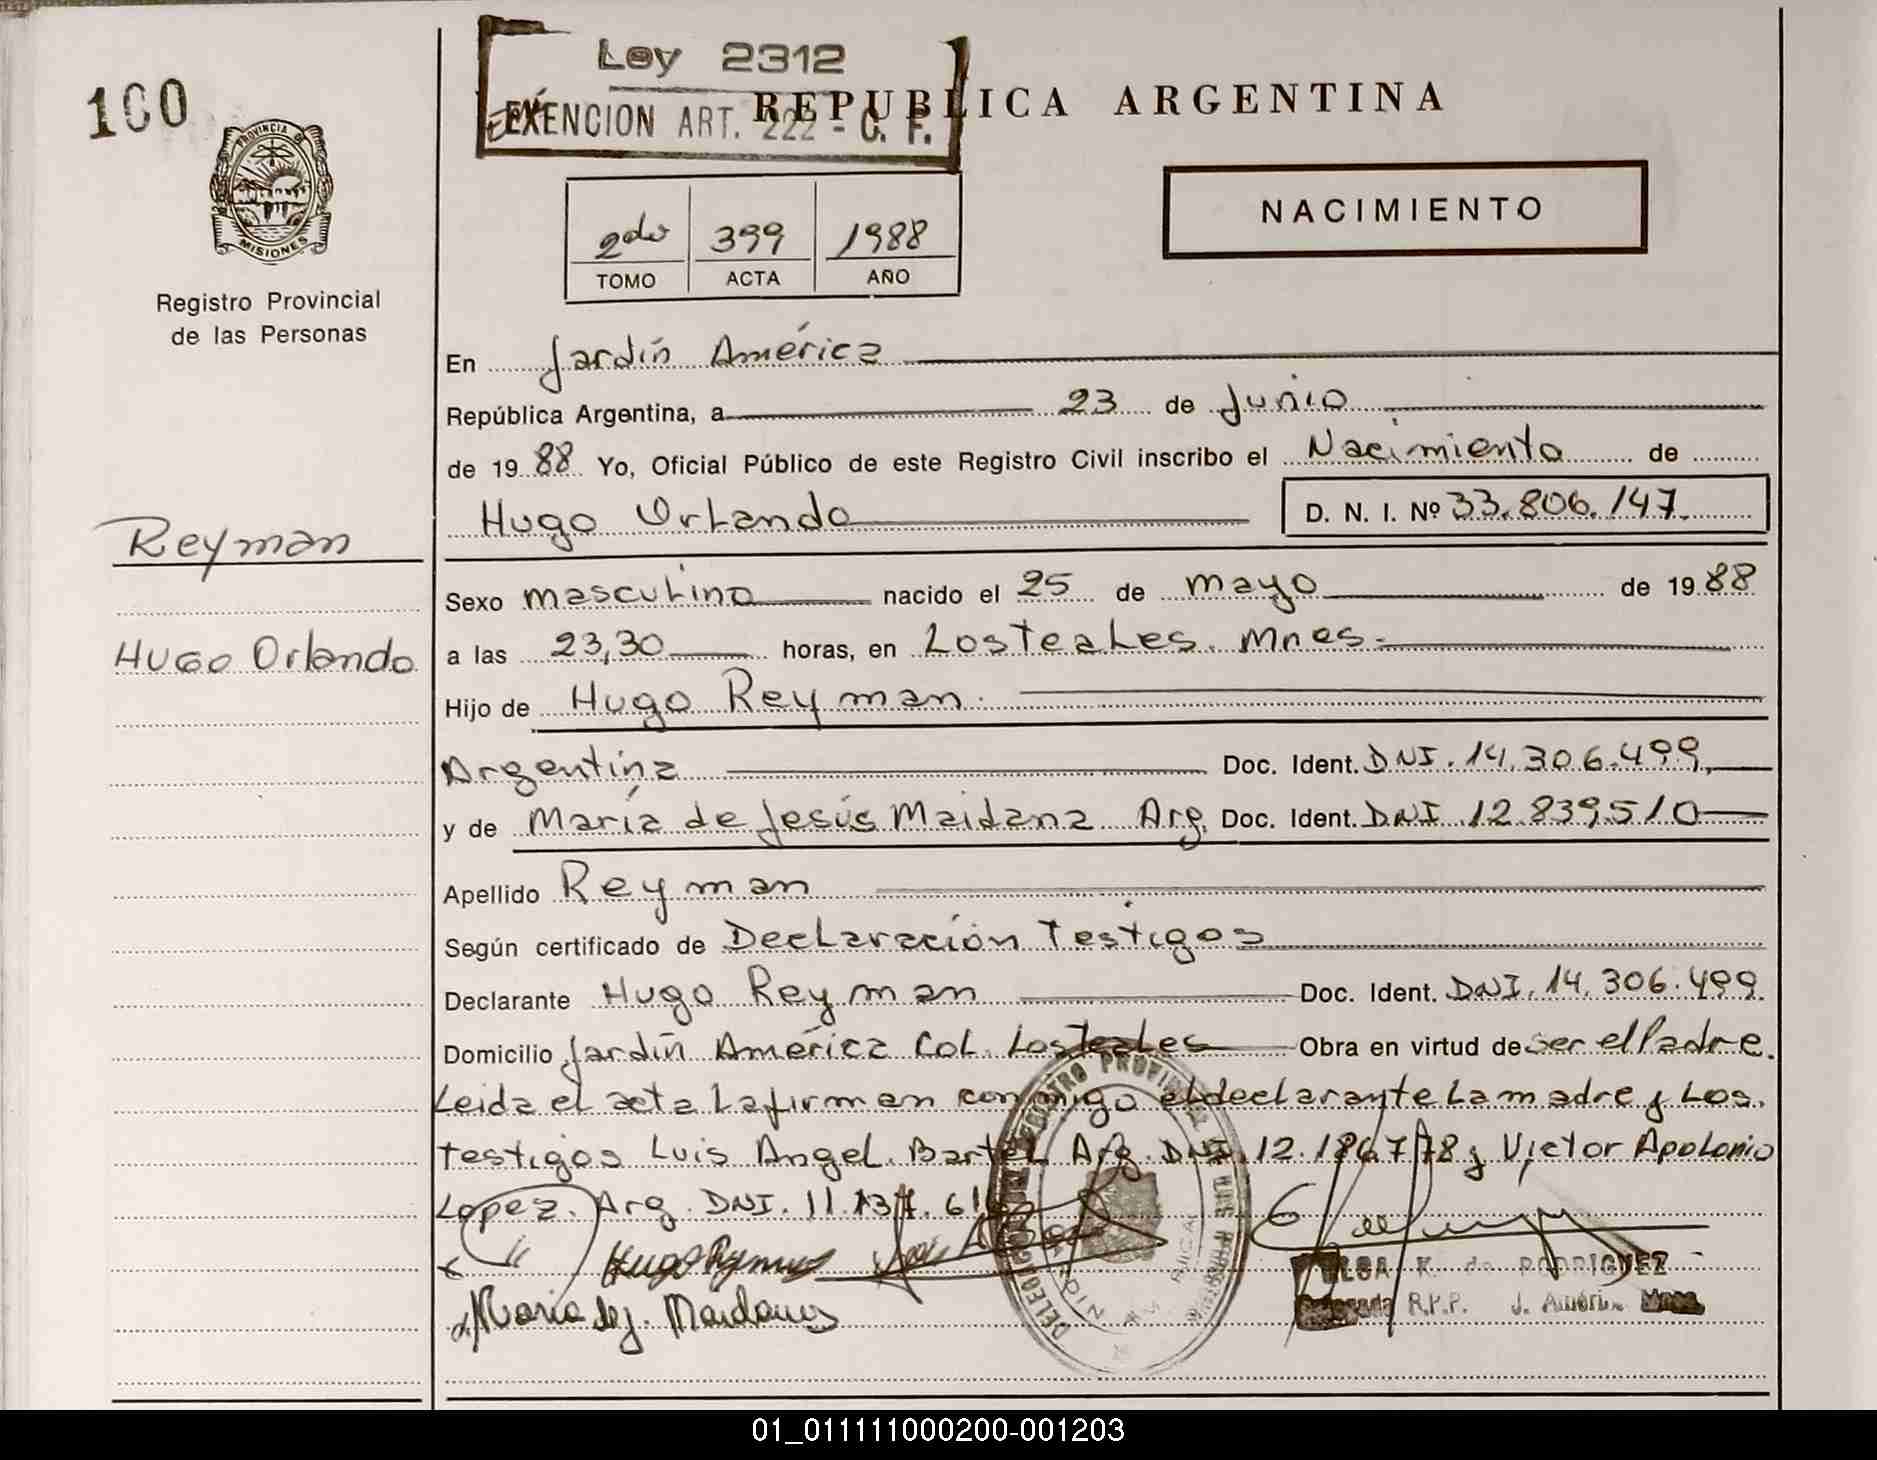 100
Ley 2312
EXENCION ART. 222 - C. F.
REPUBLICA ARGENTINA
PROVINCIA DE
MISIONES
Registro Provincial
de las Personas
2do 399 1988
TOMO ACTA AÑO
NACIMIENTO
En Jardín América
República Argentina, a 23 de Junio
de 1988 Yo, Oficial Público de este Registro Civil inscribo el Nacimiento de
Hugo Orlando D. N. I. Nº 33.806.147
Reyman
Hugo Orlando
Sexo masculino nacido el 25 de mayo de 1988
a las 23,30 horas, en Los Teales. Mnes.
Hijo de Hugo Reyman
Argentina Doc. Ident. DNI. 14.306.499
y de María de Jesús Maidana Arg. Doc. Ident. DNI 12.839.510
Apellido Reyman
Según certificado de Declaración Testigos
Declarante Hugo Reyman Doc. Ident. DNI. 14.306.499
Domicilio Jardín América Col. Los Teales Obra en virtud de ser el Padre.
Leida el acta la firman conmigo el declarante la madre y Los
testigos Luis Angel Bartel Arg. DNI. 12.186.778 y Victor Apolonio
Lopez. Arg. DNI. 11.
Hugo Reyman
Maria de J. Maidana
ELSA K. de RODRIGUEZ
Delegada R.P.P. J. América Mnes.
01_011111000200-001203